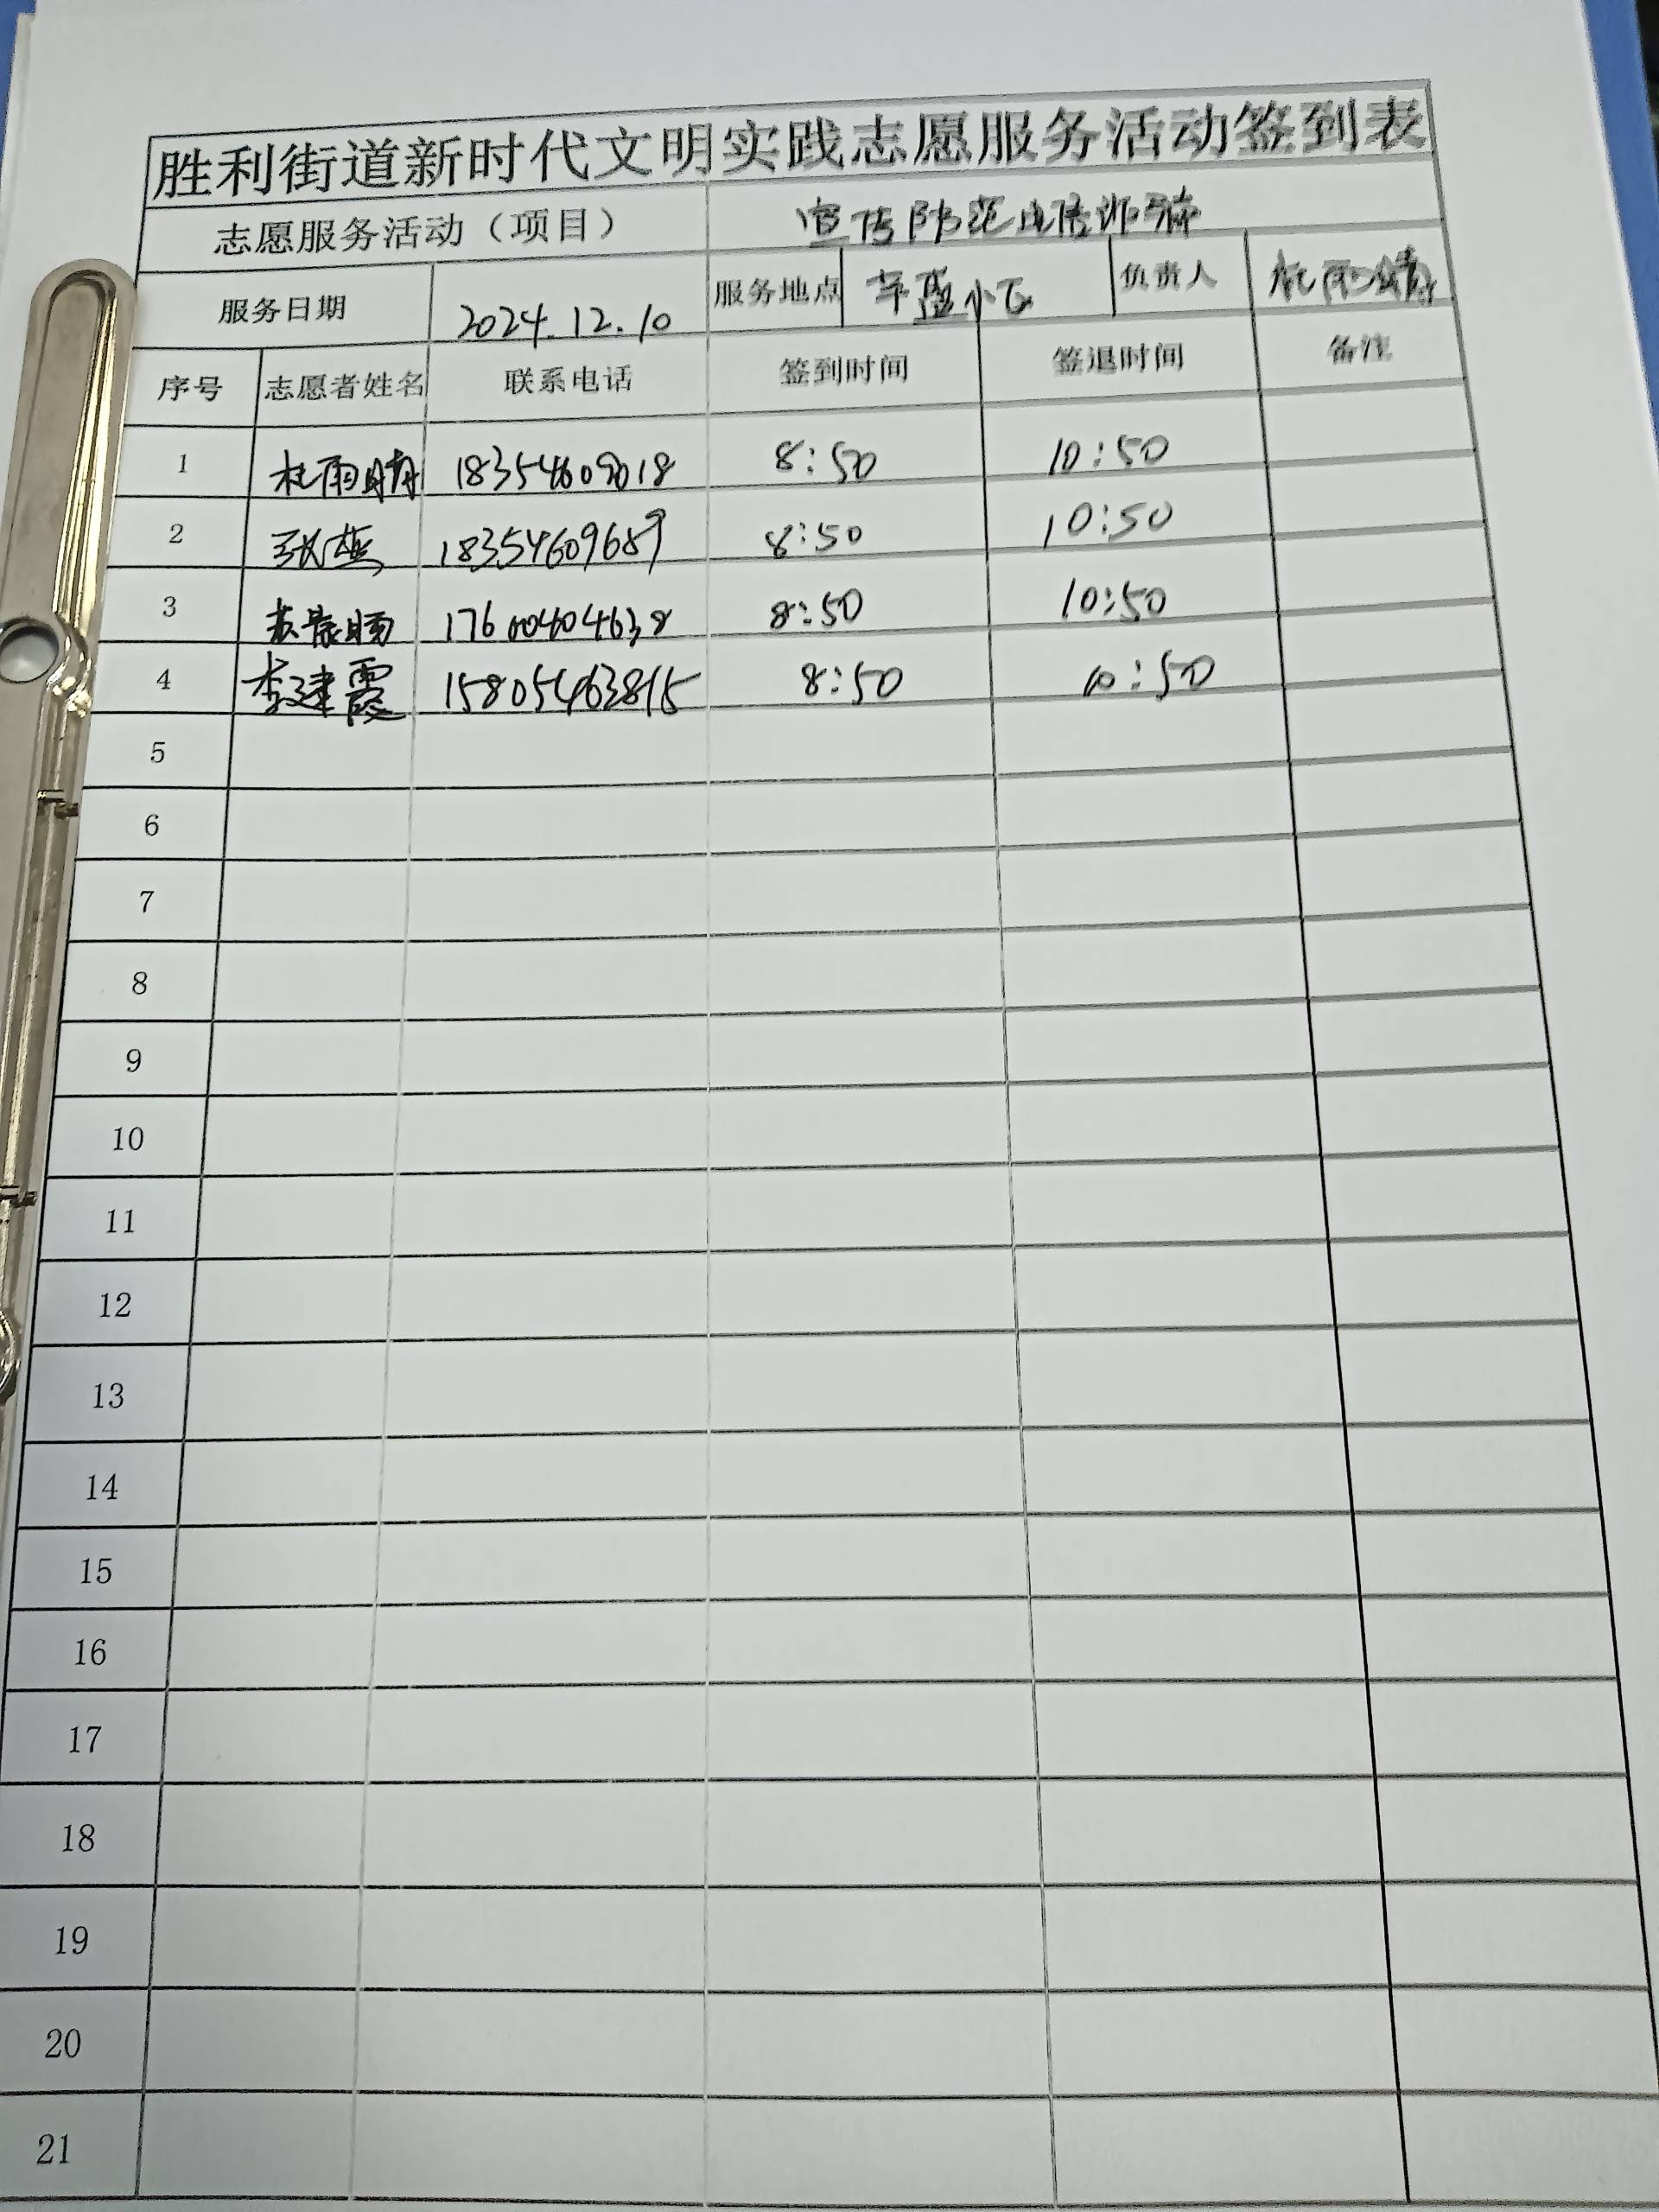 胜利街道新时代文明实践志愿服务活动签到表
志愿服务活动（项目） 宣传防范电信诈骗
服务日期 2024.12.10 服务地点 辛盛小区 负责人 杜雨晴
序号 志愿者姓名 联系电话 签到时间 签退时间 备注
1 杜雨晴 18354609018 8:50 10:50
2 18354609689 8:50 10:50
3 17600404638 8:50 10:50
4 李建霞 15805463815 8:50 10:50
5
6
7
8
9
10
11
12
13
14
15
16
17
18
19
20
21